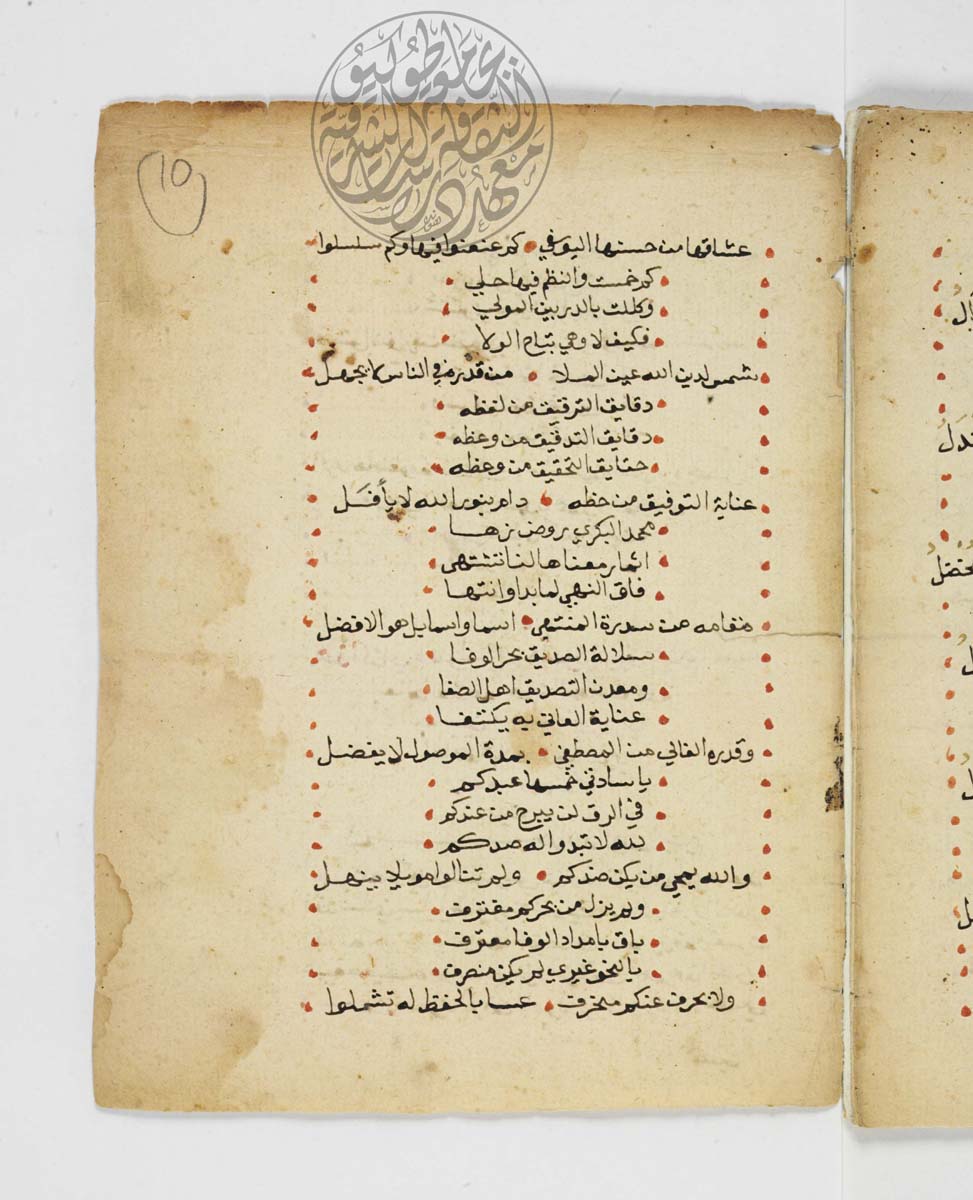 10
عشاقها من حسنها اليوسفي كم عنعنوا فيها وكم سلسلوا
كم خمست والنظم فيها حلي
وكللت بالدر بين المولي
فكيف لا وهي بتاج الولا
شمس لدين الله عين الملا من قدره في الناس لا يجهل
دقايق الترقيق من لفظه
دقايق التدقيق من وعظه
حقايق التحقيق من وعظه
عناية التوفيق من حظه دام بنور الله لا يأفل
محمد البكري روض زها
اثمار معناها لنا تشتهى
فاق النهي لما بدا وانتها
مقامه من سدرة المنتهي اسما واسما بل هو الافضل
سلالة الصديق بحر الوفا
ومعدن التصديق اهل الصفا
عناية العاني به يكتفا
وقدره الغالي من المصطفي بمدة الموصول لا يفضل
يا سادتي خمسها عبدكم
في الرق لن يبرح من عندكم
لله لا تبدوا له صدكم
والله يحمي من يكن ضدكم ولم تنالوا
ولم يزل من بحركم مغترف
باق بامداد الوفا معترف
بالنحو غيري لم يكن منصرف
ولا بحرف عنكم منحرف عسا بالحفظ له تشملوا
جامعة طوكيو
معهد دراسات الثقافة الشرقية